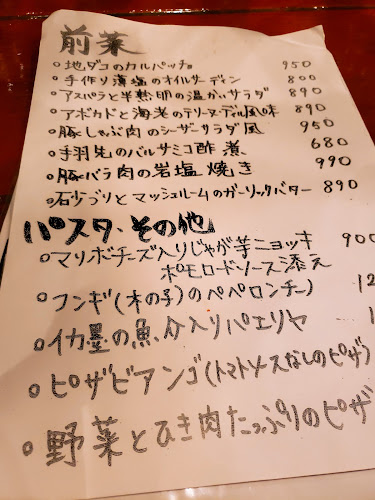 前菜
○地ダコのカルパッチョ 950
○手作り薄塩のオイルサーディン 800
○アスパラと半熟卵の温かいサラダ 890
○アボカドと海老のテリーヌ・ディル風味 890
○豚しゃぶ肉のシーザーサラダ風 950
○手羽先のバルサミコ酢煮 680
○豚バラ肉の岩塩焼き 990
○砂ずりとマッシュルームのガーリックバター 890
パスタ・その他
○マリボチーズ入りじゃが芋ニョッキ 900
ポモロードソース添え
○フンギ(木の子)のペペロンチーノ 12
○イカ墨の魚介入りパエリヤ 1
○ピザビアンゴ(トマトソースなしのピザ)
○野菜とひき肉たっぷりのピザ